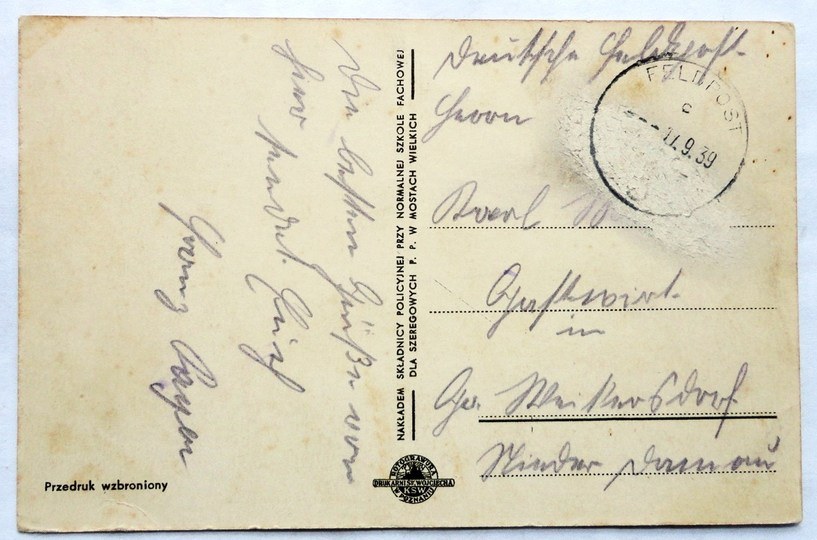 Die besten Grüße von
hier sendet Euch
Franz
Przedruk wzbroniony
NAKŁADEM SKŁADNICY POLICYJNEJ PRZY NORMALNEJ SZKOLE FACHOWEJ
DLA SZEREGOWYCH P. P. W MOSTACH WIELKICH
ROTOGRAWURA
DRUKARNI ŚW. WOJCIECHA
KSW
W POZNANIU
Deutsche Feldpost
FELDPOST
c
17.9.39
Herrn
Karl
Gastwirt
in
Gr. Weikersdorf
Nieder Donau